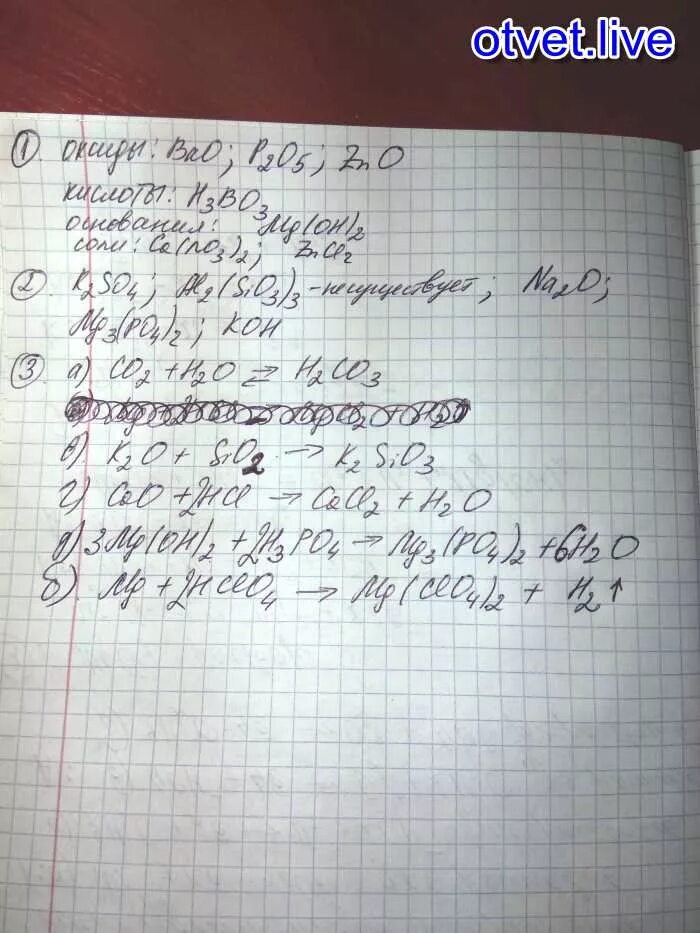 otvet.live
① оксиды: BaO; P₂O₅; ZnO
кислоты: H₃BO₃
основания: Mg(OH)₂
соли: Ca(NO₃)₂; ZnCl₂
② K₂SO₄; Al₂(SiO₃)₃ - несуществует; Na₂O;
Mg₃(PO₄)₂; KOH
③ а) CO₂ + H₂O ⇄ H₂CO₃
в) K₂O + SiO₂ → K₂SiO₃
г) CaO + 2HCl → CaCl₂ + H₂O
д) 3Mg(OH)₂ + 2H₃PO₄ → Mg₃(PO₄)₂ + 6H₂O
б) Mg + 2HClO₄ → Mg(ClO₄)₂ + H₂↑